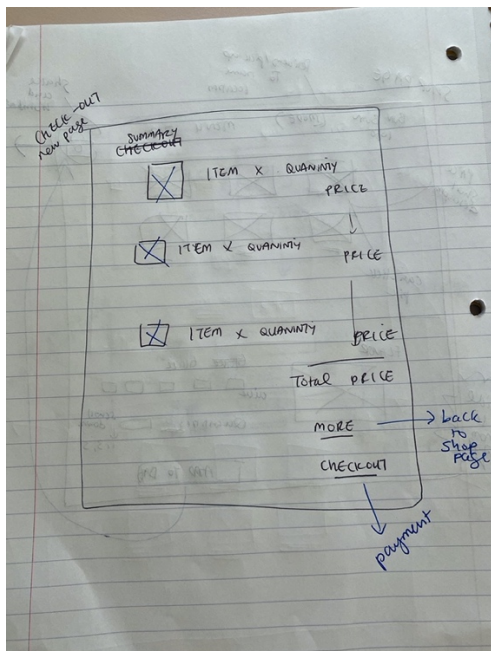 CHECK-OUT
new page
SUMMARY
CHECKOUT
ITEM X QUANINTY
PRICE
ITEM X QUANINTY
PRICE
ITEM X QUANINTY
PRICE
Total PRICE
MORE
back
to
shop
page
CHECKOUT
payment